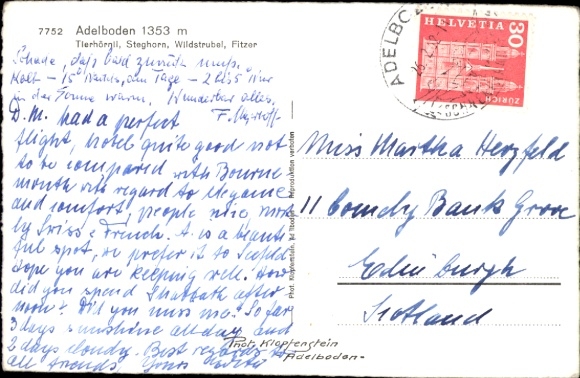 7752 Adelboden 1353 m
Tierhörnli, Steghorn, Wildstrubel, Fitzer
Schade, daß bald zurück muß.
Kalt - 15° Nachts, am Tage - 2 bis 5° Nur
in der Sonne warm. Wunderbar alles.
D.M. had a perfect
flight, hotel quite good not
to be compared with Bourne
mouth with regard to elegance
and comfort, people nice mostly
by Swiss & French. It is a beauti
ful spot, we prefer it to
hope you are keeping well. How
did you spend Shabbath after
noon? Did you miss me? So far
3 days sunshine all day and
2 days cloudy. Best regards to
all friends Yours
Phot. Klopfenstein, Adelboden. Reproduktion verboten
Phot. Klopfenstein
Adelboden
ADELBODEN
HELVETIA
30
ZÜRICH
Miss Martha Herzfeld
11 Bank Grove
Edinburgh
Scotland